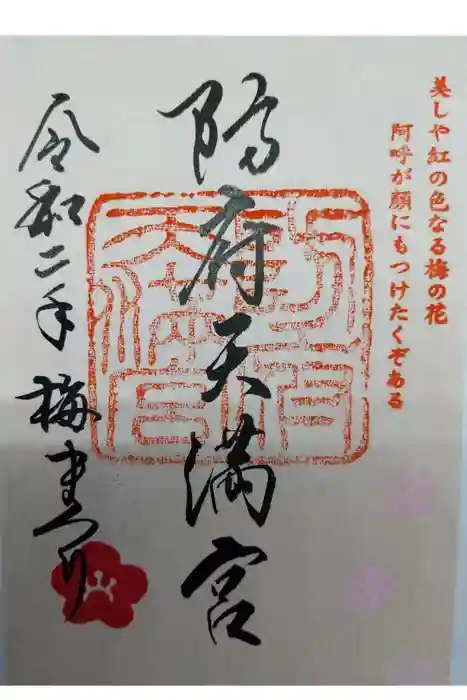 美しや紅の色なる梅の花
阿呼が顔にもつけたくぞある
防府天満宮
令和二年
梅まつり